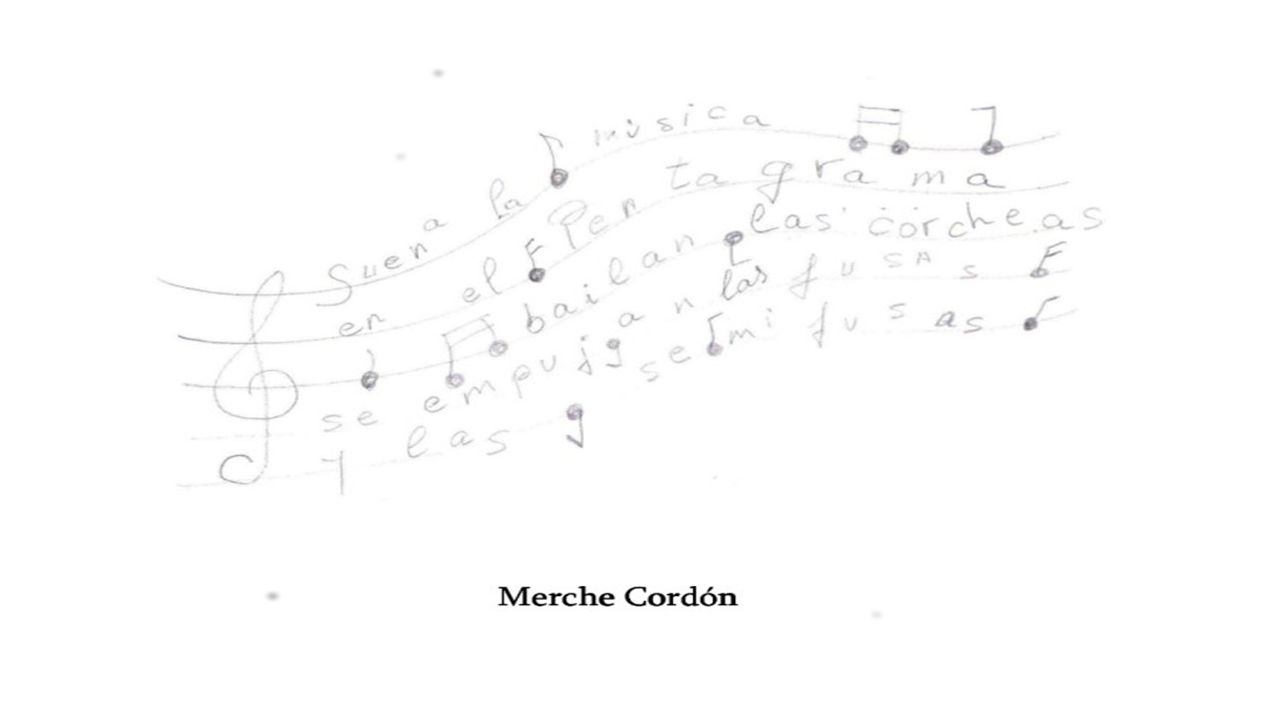 Suena la música
en el Pentagrama
bailan las corcheas
se empujan las fusAs
y las semifusas
Merche Cordón